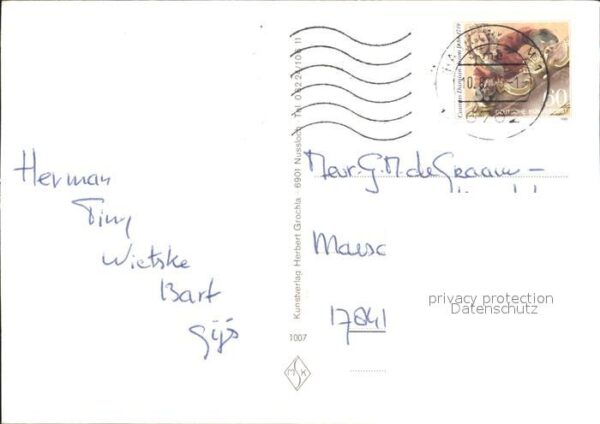 Herman
Tiny
Wietske
Bart
Gijs
Kunstverlag Herbert Grochla · 6901 Nussloch Tel 0 62 24/106 11
1007
M K
10.
60
Mevr. G.M. de Graauw –
17841
privacy protection
Datenschutz